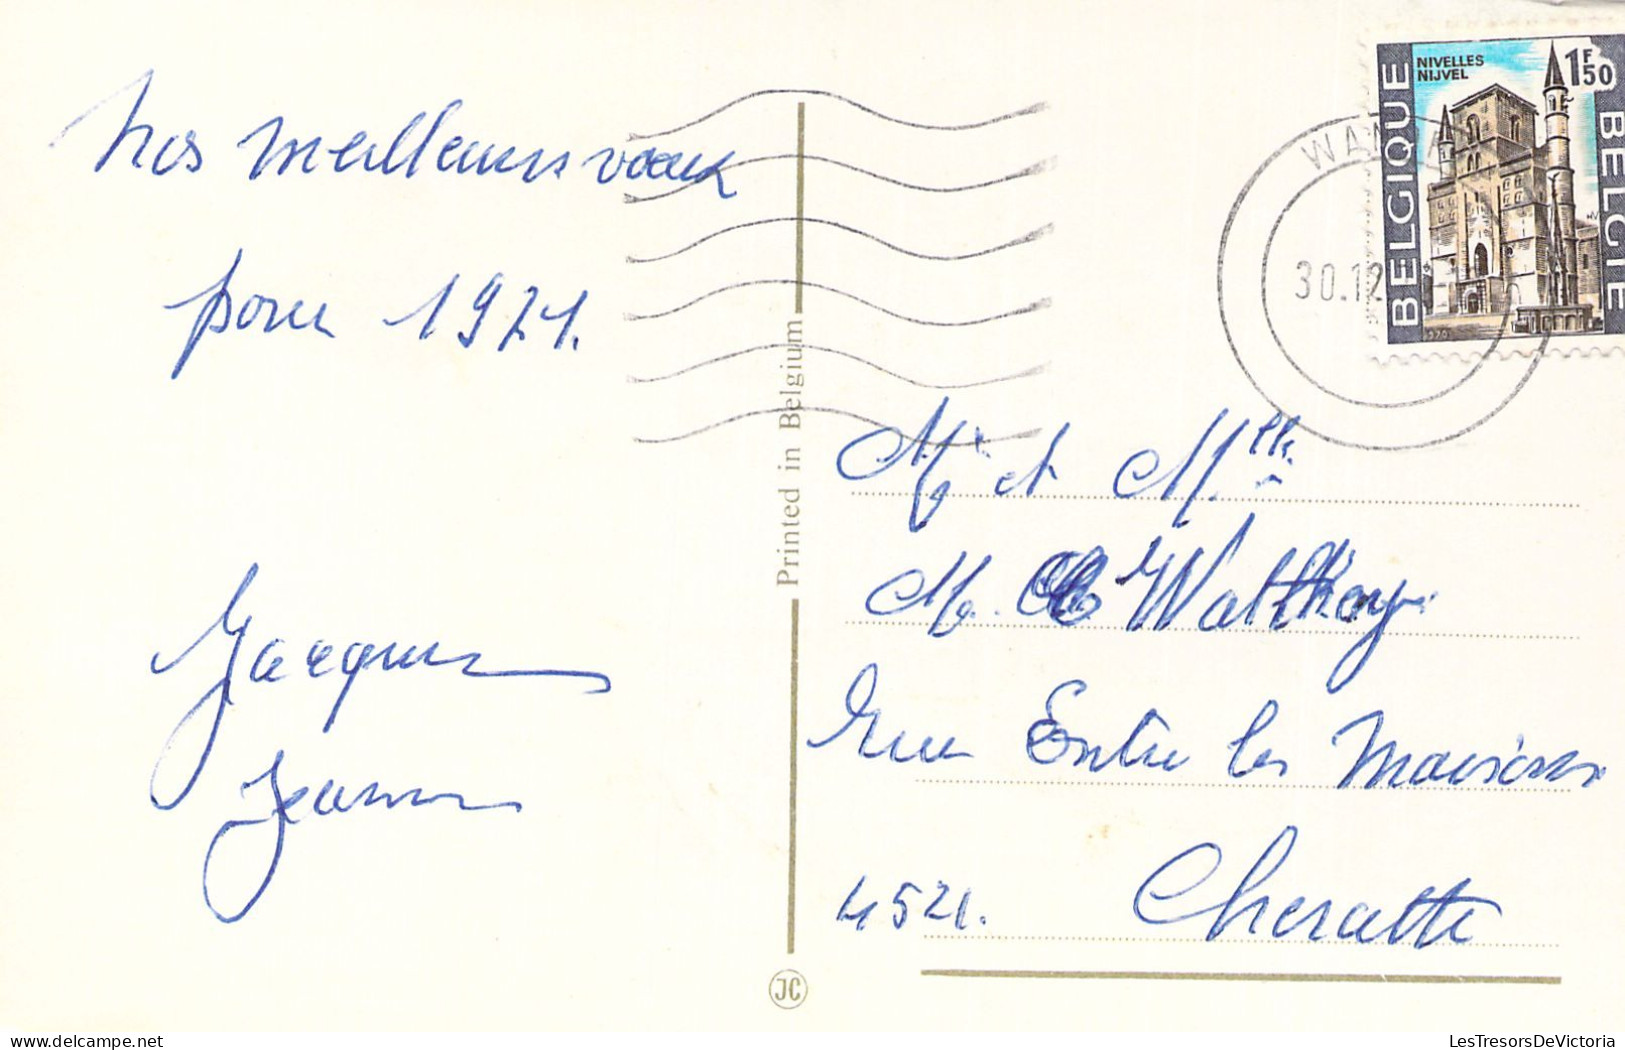 Nos meilleurs vœux
pour 1971.
Jacques
Jeanne
Printed in Belgium
JC
NIVELLES
NIJVEL
1F50
BELGIQUE
BELGIE
1970
30.12
Mr et Mlle
M. Watthey
Rue Entre les Maisons
4521. Cheratte
LesTresorsDeVictoria
LesTresorsDeVictoria.com